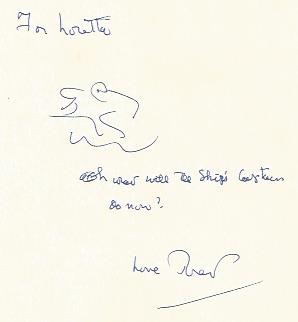 For Loretta
what will the Ship's Captain
do now?
Love